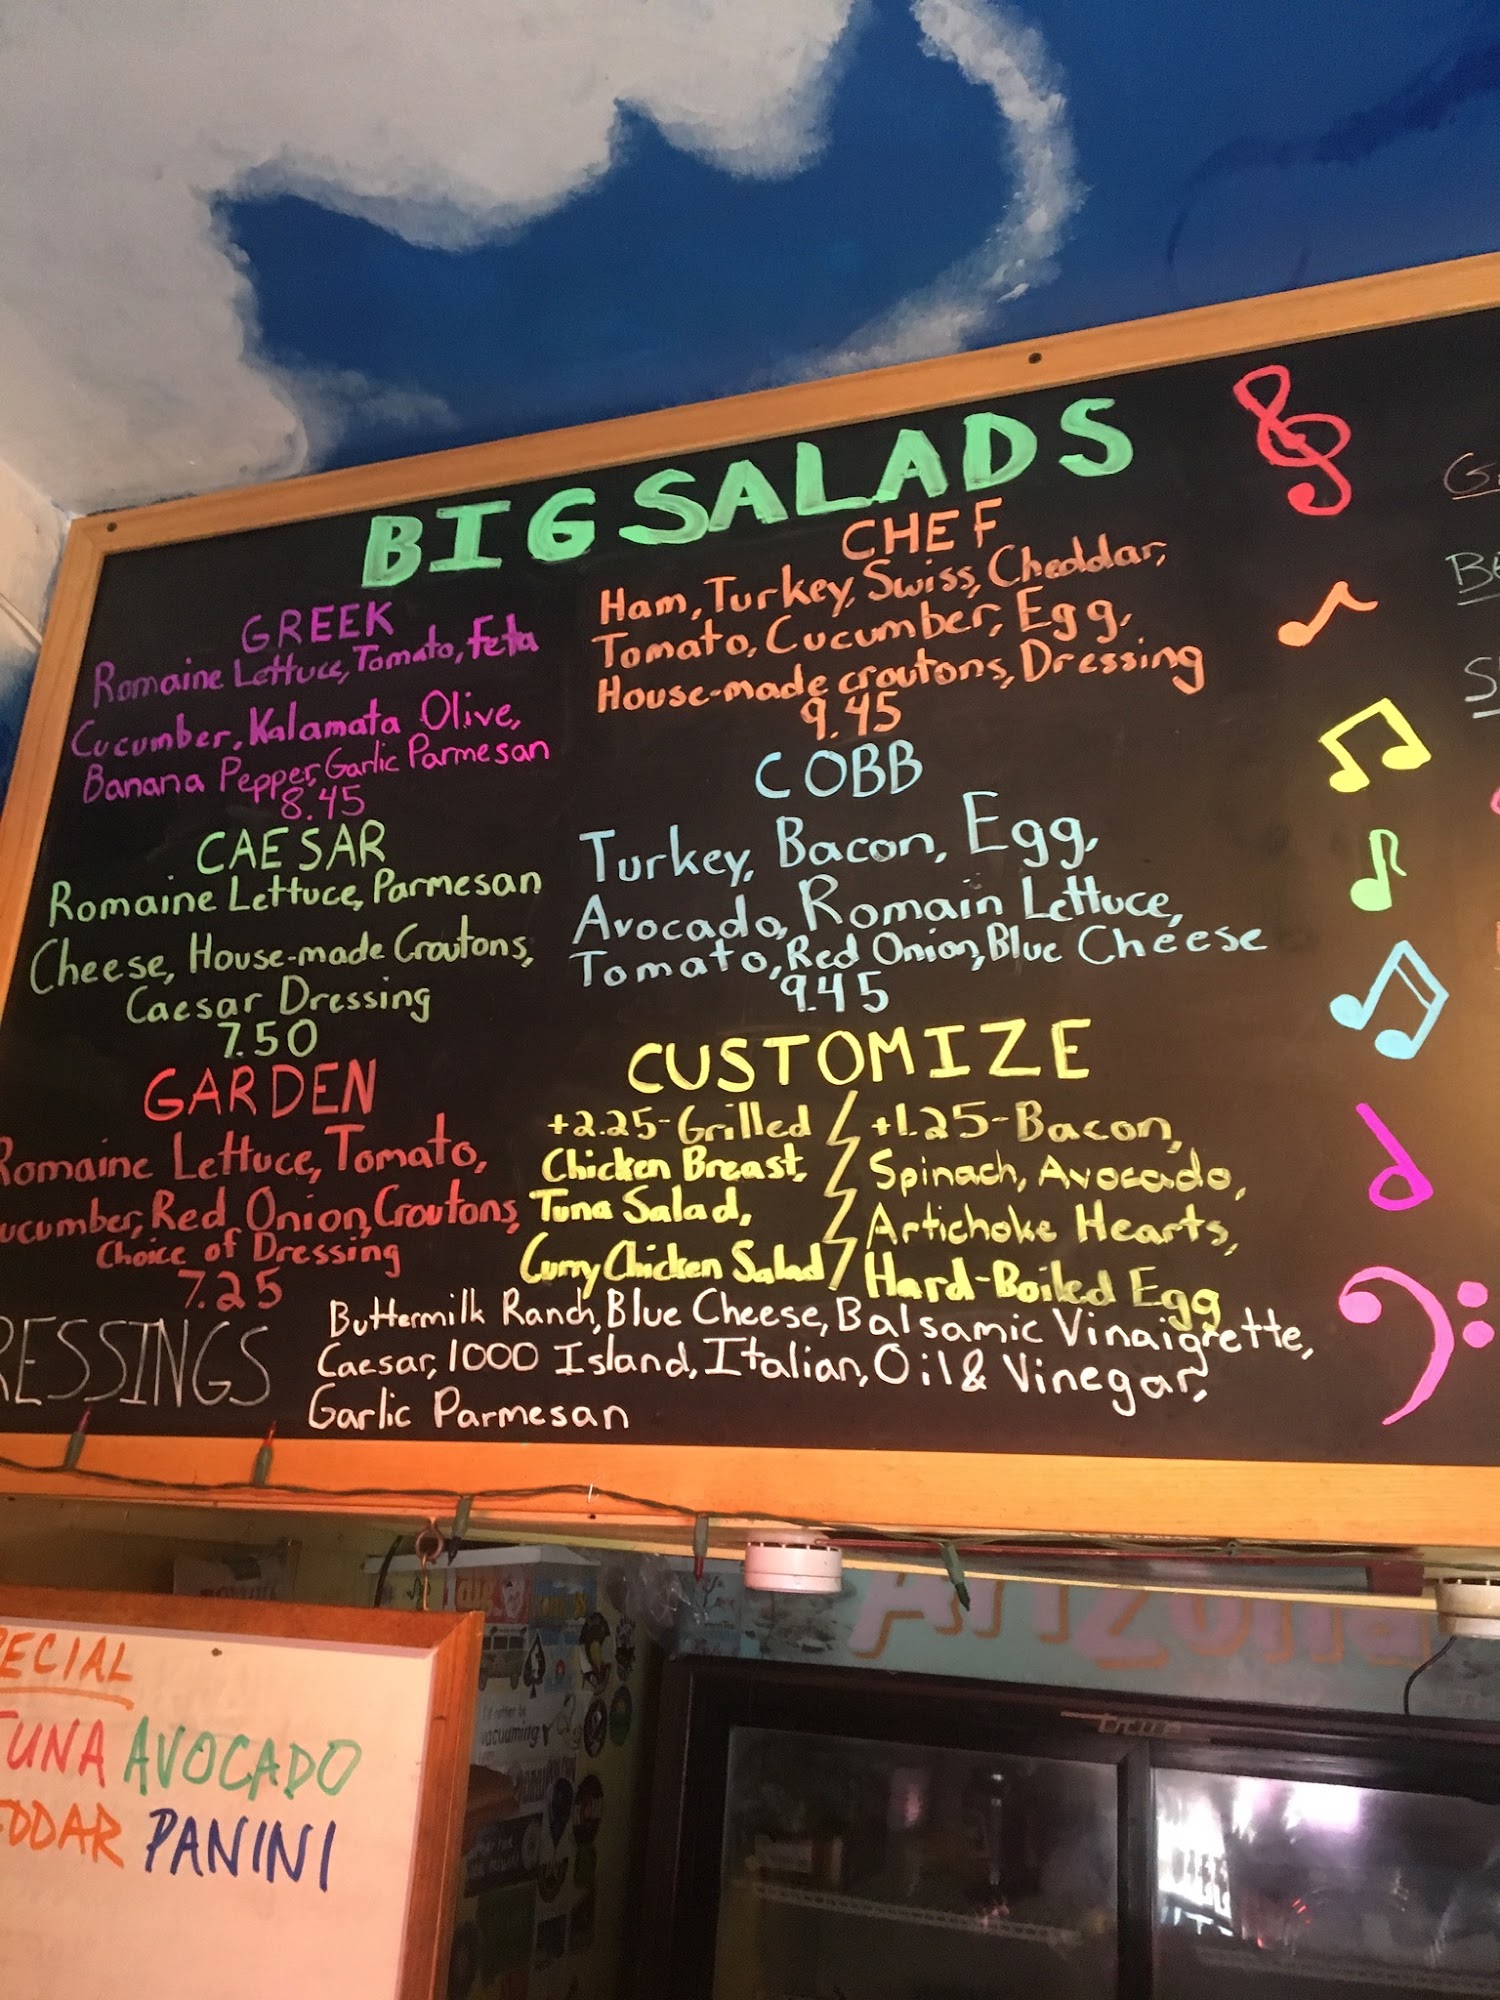 BIG SALADS
GREEK
Romaine Lettuce, Tomato, Feta
Cucumber, Kalamata Olive,
Banana Pepper, Garlic Parmesan
8.45
CAESAR
Romaine Lettuce, Parmesan
Cheese, House-made Croutons,
Caesar Dressing
7.50
GARDEN
Romaine Lettuce, Tomato,
ucumber, Red Onion, Croutons,
Choice of Dressing
7.25
CHEF
Ham, Turkey, Swiss, Cheddar,
Tomato, Cucumber, Egg,
House-made croutons, Dressing
9.45
COBB
Turkey, Bacon, Egg,
Avocado, Romain Lettuce,
Tomato, Red Onion, Blue Cheese
9.45
CUSTOMIZE
+2.25-Grilled
Chicken Breast,
Tuna Salad,
Curry Chicken Salad
+1.25-Bacon,
Spinach, Avocado,
Artichoke Hearts,
Hard-Boiled Egg
RESSINGS
Buttermilk Ranch, Blue Cheese, Balsamic Vinaigrette,
Caesar, 1000 Island, Italian, Oil & Vinegar,
Garlic Parmesan
ECIAL
TUNA AVOCADO
EDDAR PANINI
Arizona
true
vacuuming